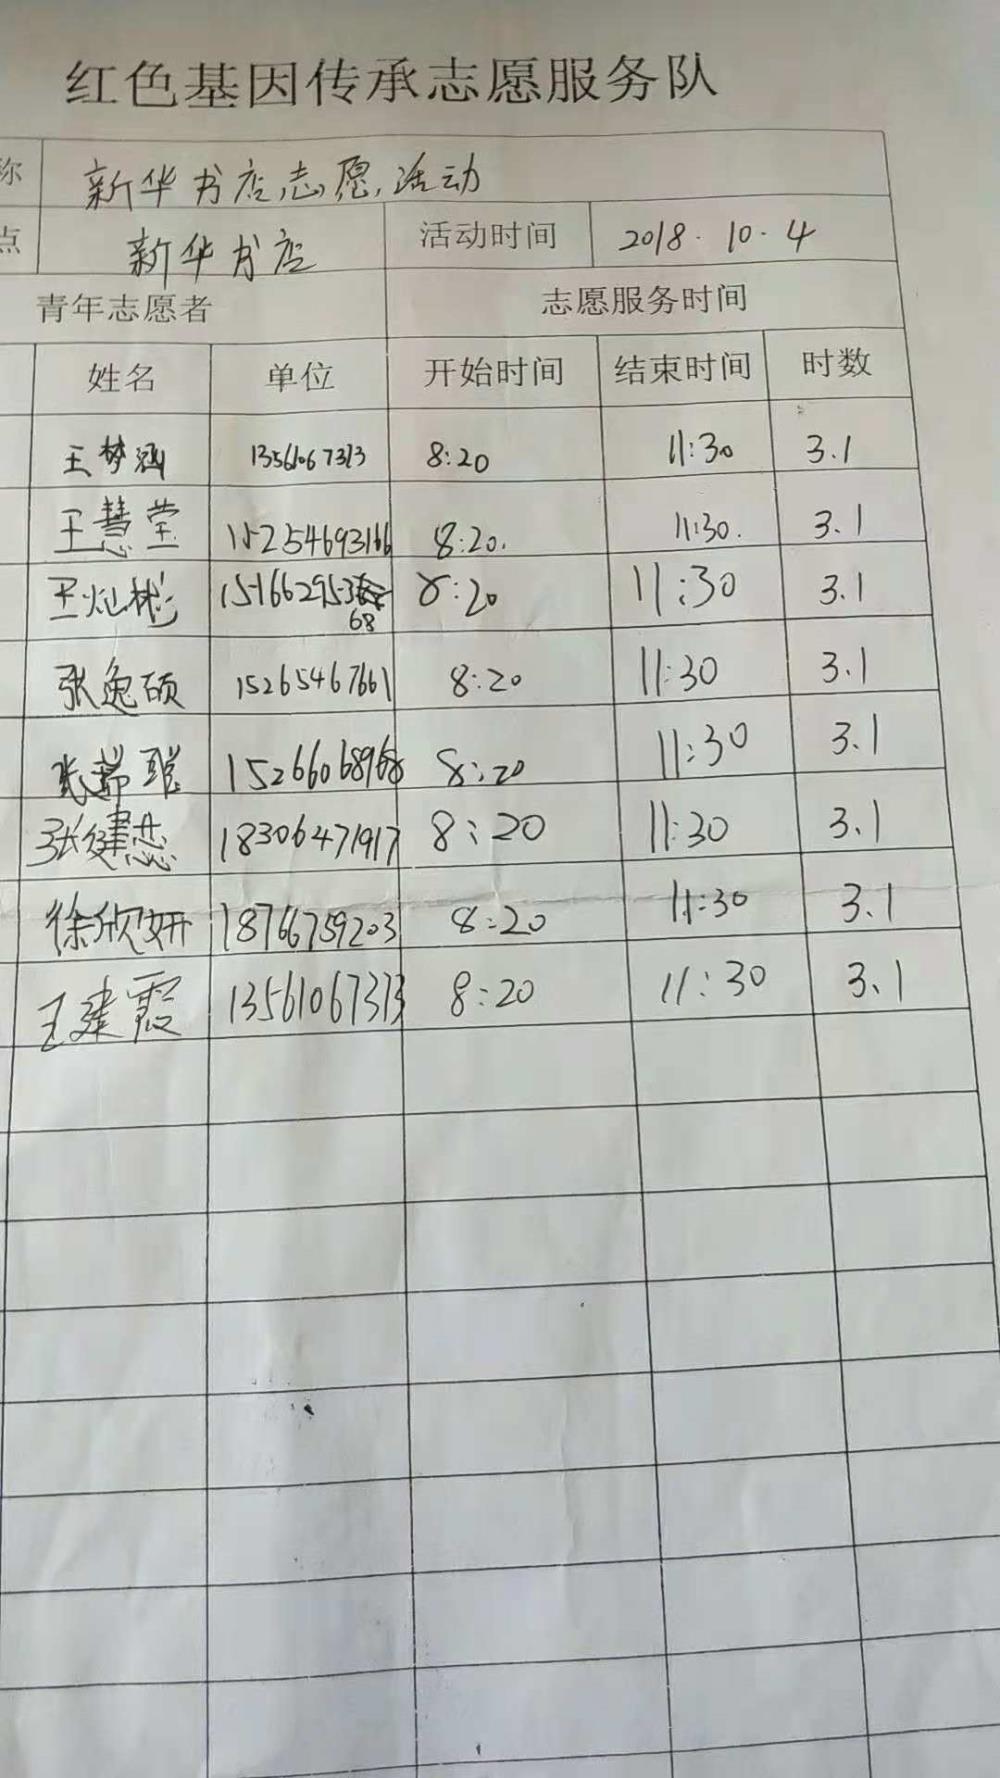 红色基因传承志愿服务队
称 新华书店志愿活动
点 新华书店 活动时间 2018.10.4
青年志愿者 志愿服务时间
姓名 单位 开始时间 结束时间 时数
王梦涵 13561067313 8:20 11:30 3.1
王慧莹 15254693166 8:20. 11:30. 3.1
王灿彬 151662953 68 8:20 11:30 3.1
张逸硕 15265467661 8:20 11:30 3.1
张瑞 15266068968 8:20 11:30 3.1
张健蕊 18306471917 8:20 11:30 3.1
徐欣妍 18766759203 8:20 11:30 3.1
王建霞 13561067313 8:20 11:30 3.1